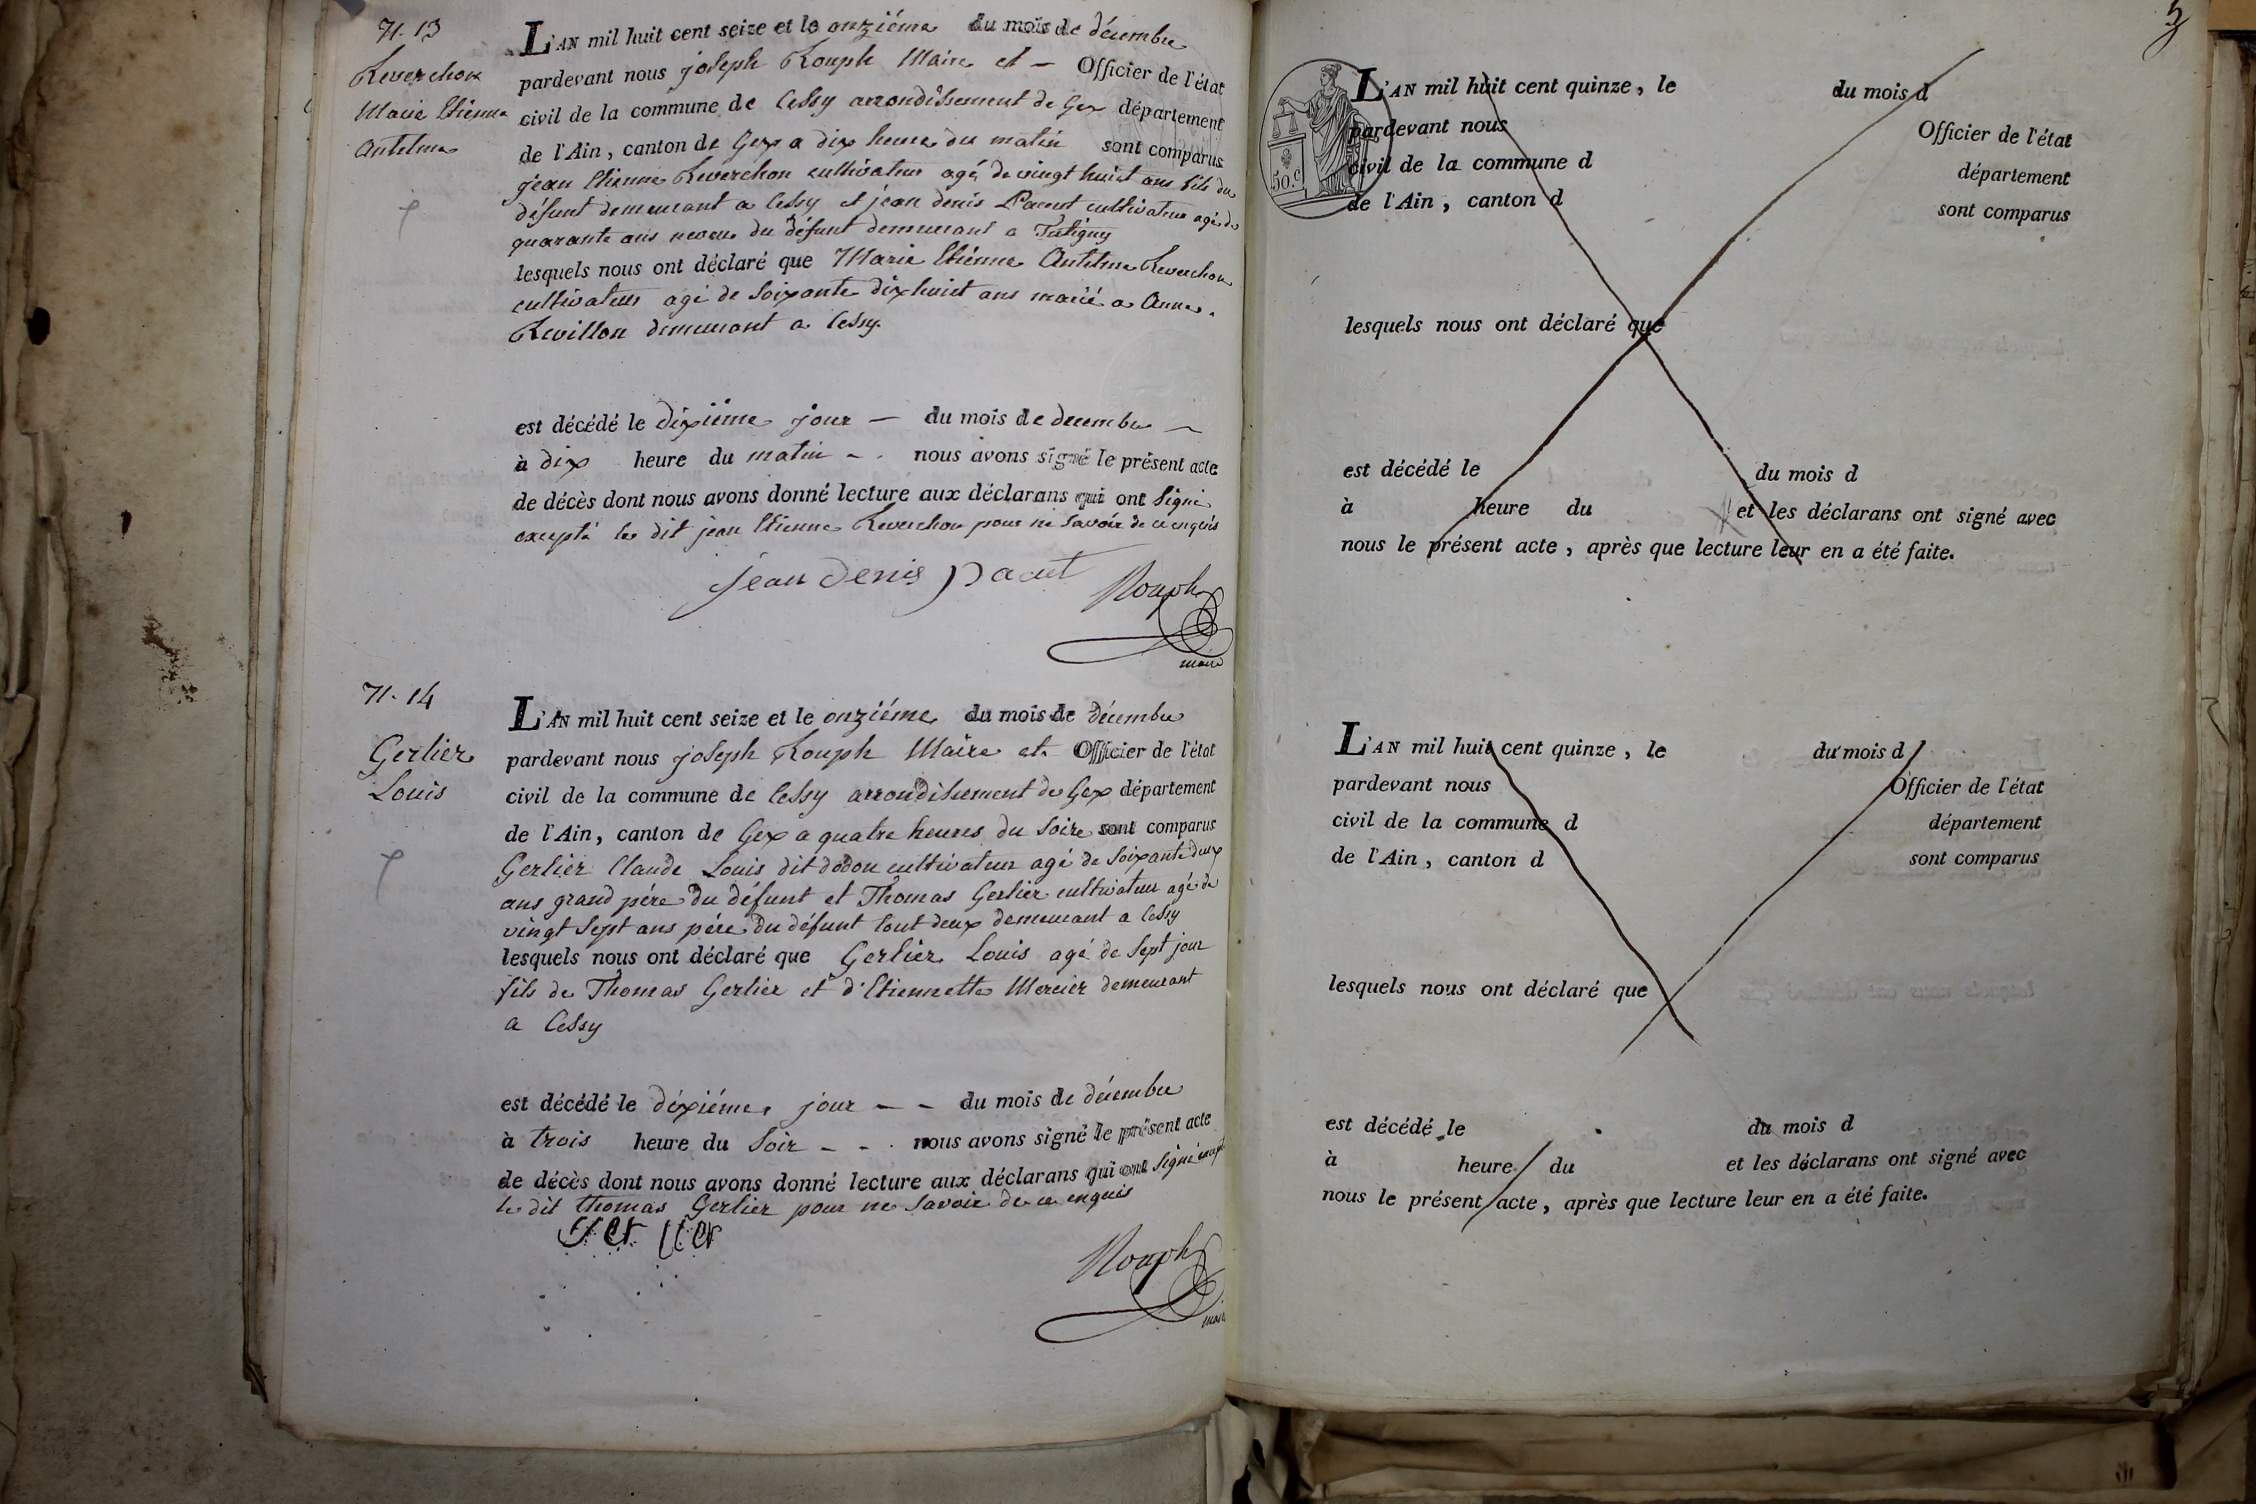 N. 13
Reverchon
Marie Etienne
Antelme
L'AN mil huit cent seize et le onziéme du mois de décembre
pardevant nous joseph Rouph Maire et – Officier de l'état
civil de la commune de Cessy arrondissement de Gex département
de l'Ain, canton de Gex a dix heure du matin sont comparus
jean Etienne Reverchon cultivateur agé de vingt huict ans fils du
défunt demeurant a Cessy et jean denis Pacaut cultivateur agé de
quarante ans neveu du défunt demeurant a
lesquels nous ont déclaré que Marie Etienne Antelme Reverchon
cultivateur agé de soixante dixhuict ans marié a Anne
Revillon demeurant a Cessy.
est décédé le dixiéme jour – du mois de decembre –
à dix heure du matin - . nous avons signé le présent acte
de décès dont nous avons donné lecture aux déclarans qui ont signé
excepté le dit jean Etienne Reverchon pour ne savoir de ce enquis
jean denis pacaut
Rouph
maire
N. 14
Gerlier
Louis
L'AN mil huit cent seize et le onziéme du mois de décembre
pardevant nous joseph Rouph Maire et. Officier de l'état
civil de la commune de Cessy arrondissement de Gex département
de l'Ain, canton de Gex a quatre heures du soire sont comparus
Gerlier Claude Louis dit dodon cultivateur agé de soixante deux
ans grand pére du défunt et Thomas Gerlier cultivateur agé de
vingt sept ans pére du défunt tout deux demeurant a Cessy
lesquels nous ont déclaré que Gerlier Louis agé de sept jour
fils de Thomas Gerlier et d'Etiennette Mercier demeurant
a Cessy
est décédé le dixiéme jour – – du mois de décembre
à trois heure du soir – - . nous avons signé le présent acte
de décès dont nous avons donné lecture aux déclarans qui ont signé excepté
le dit thomas Gerlier pour ne savoir de ce enquis
Ger lier
Rouph
maire
50.c
L'AN mil huit cent quinze, le du mois d
pardevant nous Officier de l'état
civil de la commune d département
de l'Ain, canton d sont comparus
lesquels nous ont déclaré que
est décédé le du mois d
à heure du et les déclarans ont signé avec
nous le présent acte, après que lecture leur en a été faite.
L'AN mil huit cent quinze, le du mois d
pardevant nous Officier de l'état
civil de la commune d département
de l'Ain, canton d sont comparus
lesquels nous ont déclaré que
est décédé le du mois d
à heure du et les déclarans ont signé avec
nous le présent acte, après que lecture leur en a été faite.